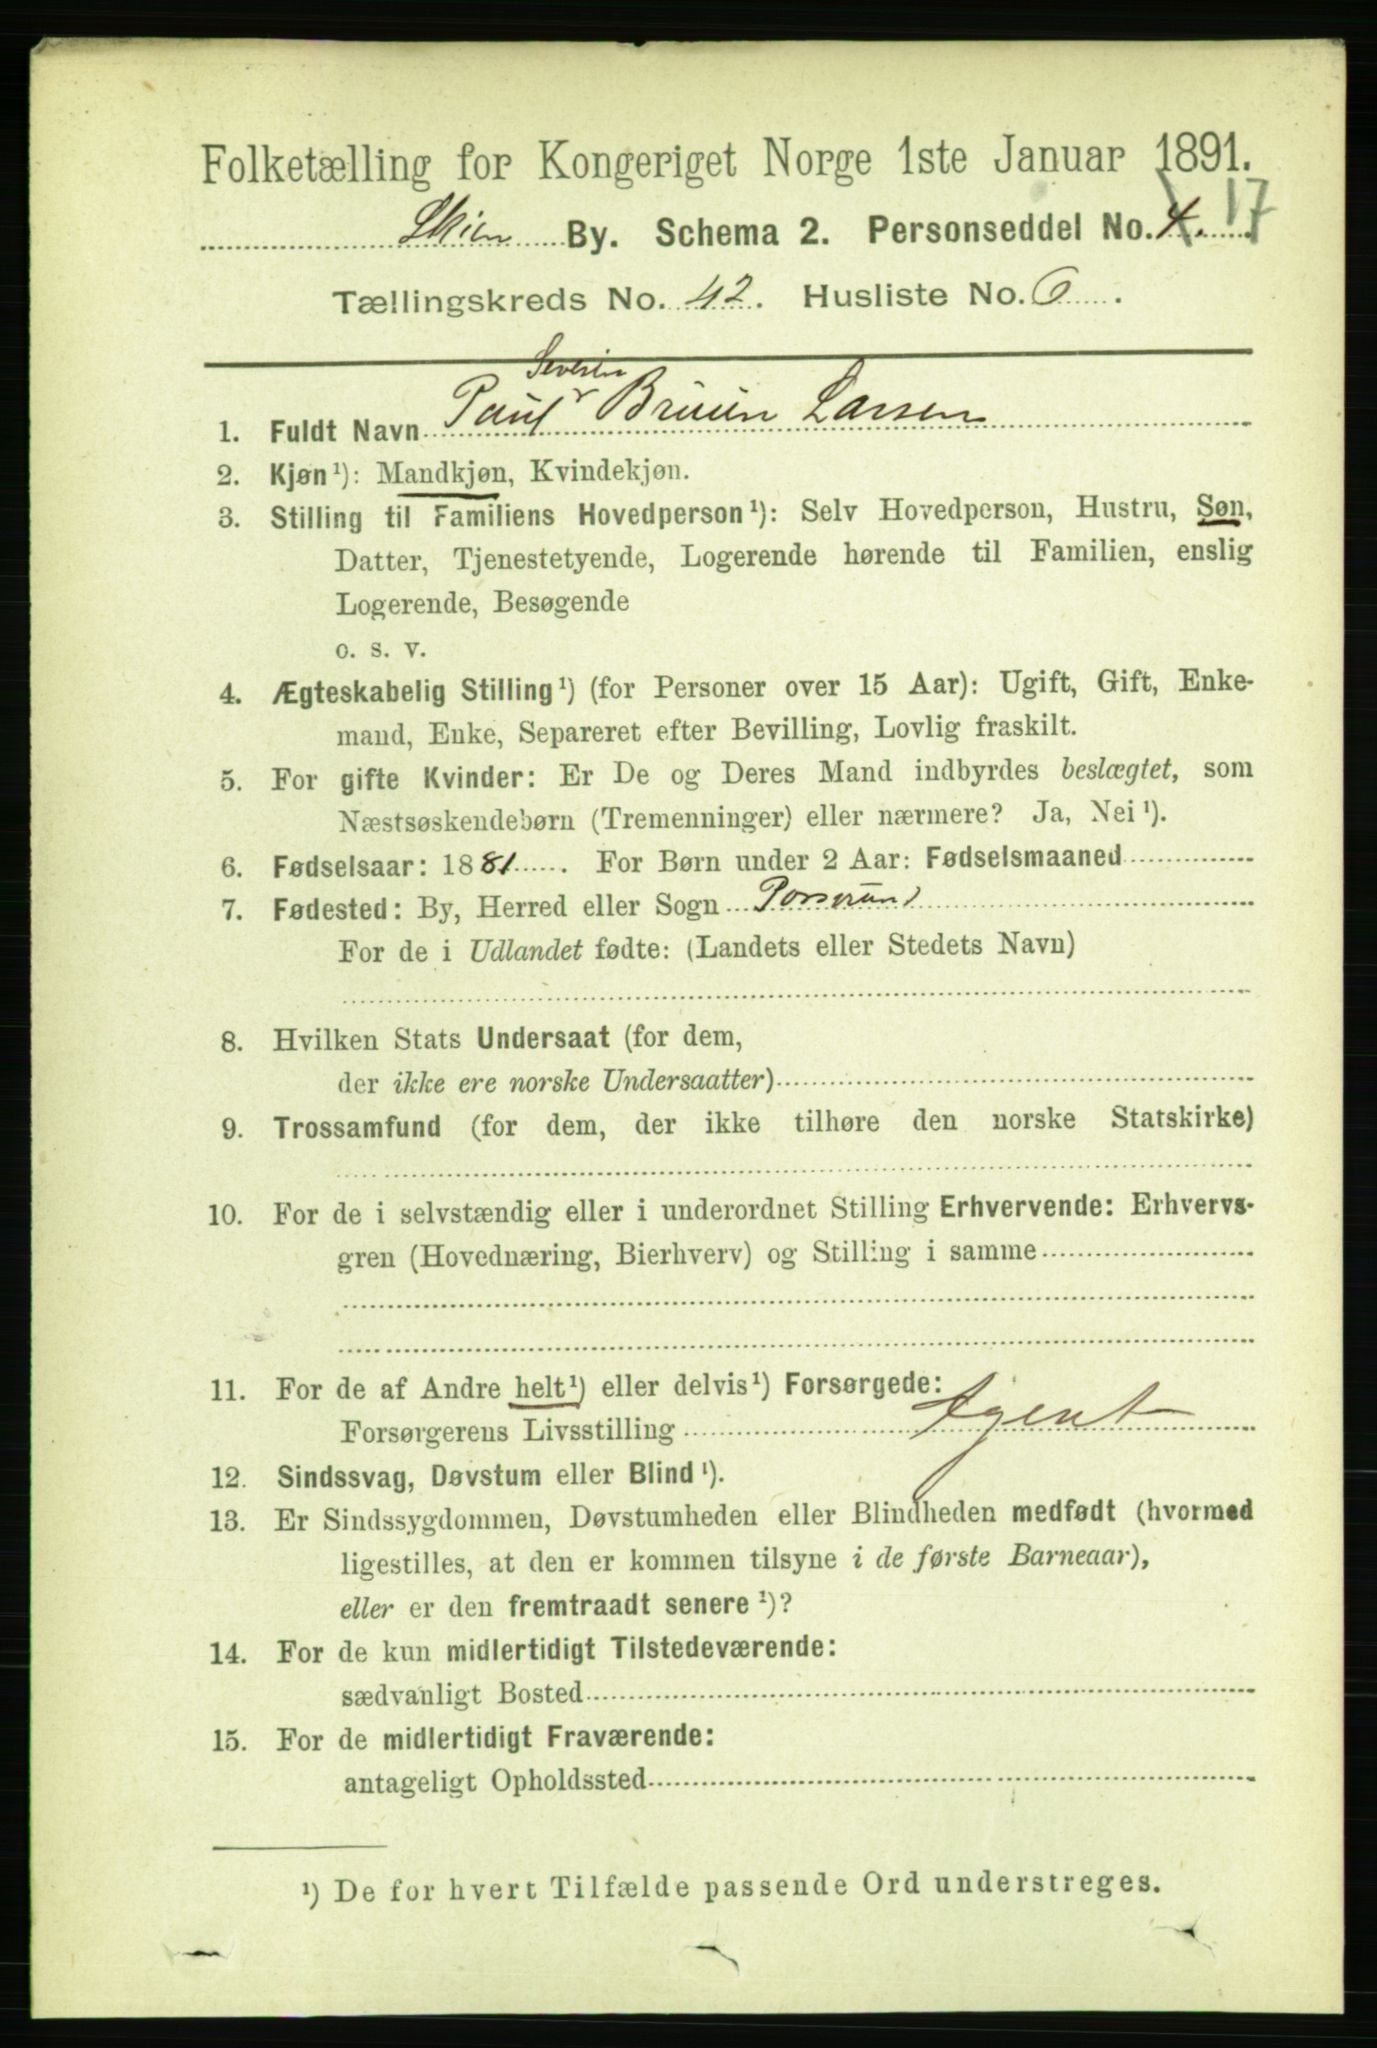 Folketælling for Kongeriget Norge 1ste Januar 1891.
Skien By. Schema 2. Personseddel No. 4. 17
Tællingskreds No. 42. Husliste No. 6.
Severin
1. Fuldt Navn Paul Bruun Larsen
2. Kjøn ¹): Mandkjøn, Kvindekjøn.
3. Stilling til Familiens Hovedperson ¹): Selv Hovedperson, Hustru, Søn,
Datter, Tjenestetyende, Logerende hørende til Familien, enslig
Logerende, Besøgende
o. s. v.
4. Ægteskabelig Stilling ¹) (for Personer over 15 Aar): Ugift, Gift, Enke-
mand, Enke, Separeret efter Bevilling, Lovlig fraskilt.
5. For gifte Kvinder: Er De og Deres Mand indbyrdes beslægtet, som
Næstsøskendebørn (Tremenninger) eller nærmere? Ja, Nei ¹).
6. Fødselsaar: 1881. For Børn under 2 Aar: Fødselsmaaned
7. Fødested: By, Herred eller Sogn Porsgrund
For de i Udlandet fødte: (Landets eller Stedets Navn)
8. Hvilken Stats Undersaat (for dem,
der ikke ere norske Undersaatter)
9. Trossamfund (for dem, der ikke tilhøre den norske Statskirke)
10. For de i selvstændig eller i underordnet Stilling Erhvervende: Erhvervs-
gren (Hovednæring, Bierhverv) og Stilling i samme
11. For de af Andre helt ¹) eller delvis ¹) Forsørgede:
Forsørgerens Livsstilling Agent
12. Sindssvag, Døvstum eller Blind ¹).
13. Er Sindssygdommen, Døvstumheden eller Blindheden medfødt (hvormed
ligestilles, at den er kommen tilsyne i de første Barneaar),
eller er den fremtraadt senere ¹)?
14. For de kun midlertidigt Tilstedeværende:
sædvanligt Bosted
15. For de midlertidigt Fraværende:
antageligt Opholdssted
¹) De for hvert Tilfælde passende Ord understreges.